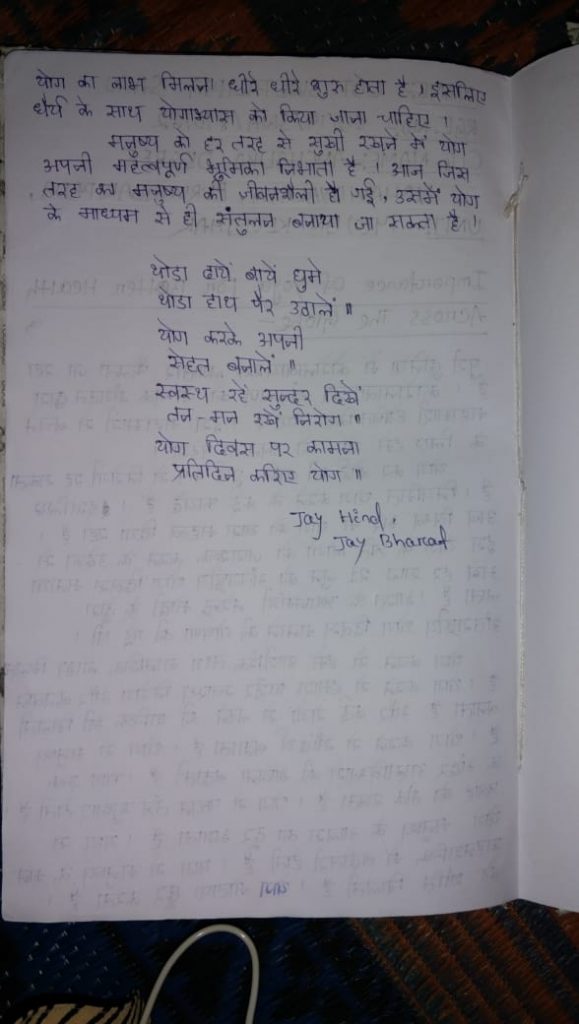 योग का लाभ मिलना धीरे धीरे शुरु होता है, इसलिए
धैर्य के साथ योगाभ्यास को किया जाना चाहिए।
मनुष्य को हर तरह से सुखी रखने में योग
अपनी महत्वपूर्ण भूमिका निभाता है। आज जिस
तरह का मनुष्य की जीवनशैली हो गई, उसमें योग
के माध्यम से ही संतुलन बनाया जा सकता है।
थोडा दायें बायें घुमे
थोडा हाथ पैर उठालें॥
योग करके अपनी
सेहत बनालें॥
स्वस्थ रहें सुन्दर दिखें
तन-मन रखें निरोग॥
योग दिवस पर कामना
प्रतिदिन करिए योग॥
Jay Hind,
Jay Bharat